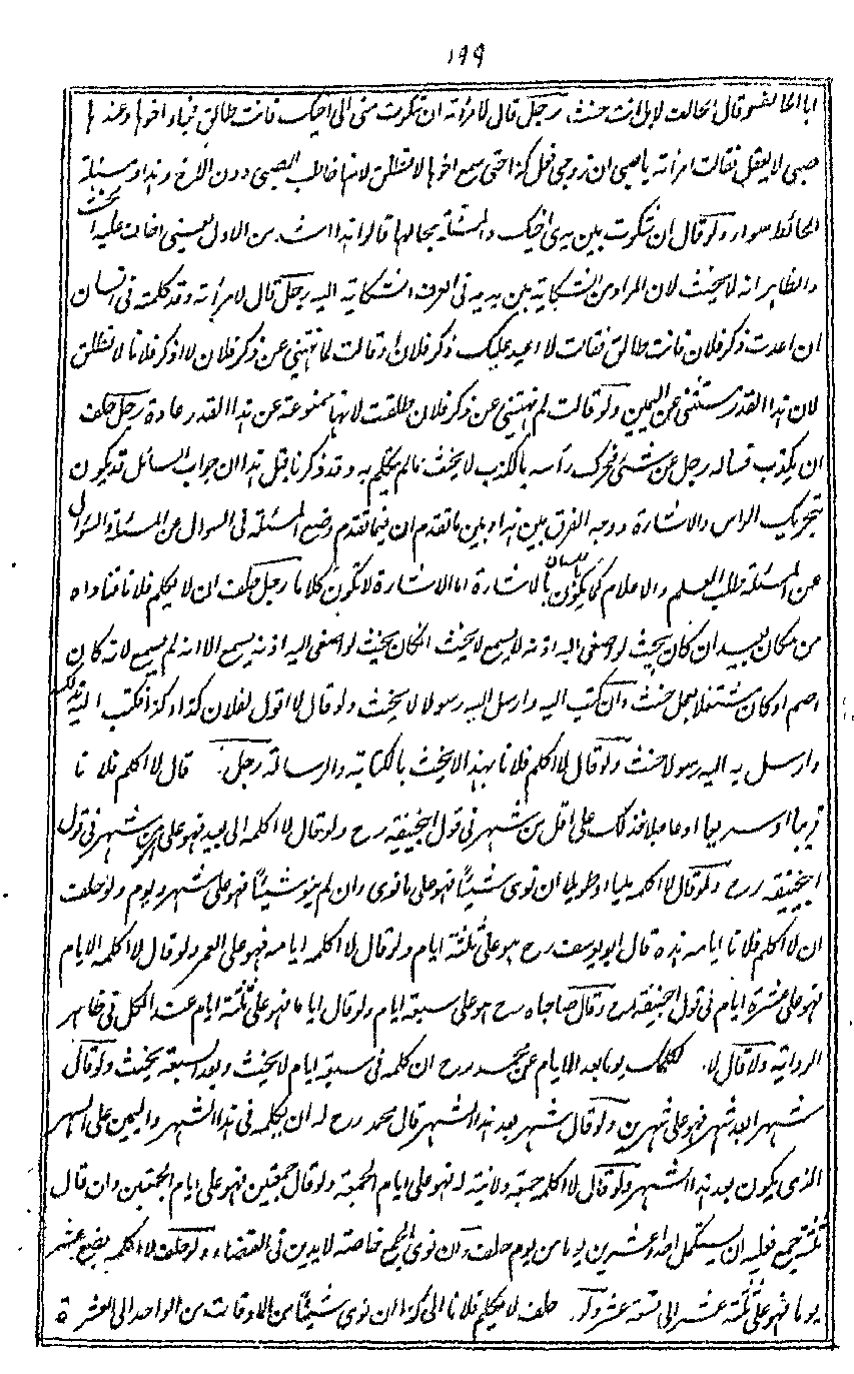 ١٩٩
قال لامرأته ان شكوت منى الى اخيك فانت طالق فجاء اخوها وعندها
صبى لا يعقل فقالت امرأته يا صبى ان زوجى فعل كذا حتى سمع اخوها لا تطلق لانها خاطب الصبى دون الاخ وهذا ومسئلة
الحائط سواء ولو قال ان شكوت بين يدى اخيك والمسئلة بحالها قالوا هذا اشد من الاول يعنى اخاف عليه الحنث
والظاهر انه لا يحنث لان المراد من الشكاية بين يديه فى العرف الشكاية اليه رجل قال لامرأته وقد كلمته فى انسان
ان اعدت ذكر فلان فانت طالق فقالت لا اعيد عليك ذكر فلان او قالت لما نهيتنى عن ذكر فلان لا اذكر فلانا لا تطلق
لان هذا القدر مستثنى عن اليمين ولو قالت لم نهيتنى عن ذكر فلان طلقت لانها ممنوعة عن هذا القدر عادة رجل حلف
ان يكذب فساله رجل عن شئ فحرك رأسه بالكذب لا يحنث مالم يتكلم به وقد ذكرنا قبل هذا ان جواب السائل قد يكون
بتحريك الراس والاشارة ووجه الفرق بين هذا وبين ما تقدم ان فيما تقدم وضع المسئلة فى السوال عن المسئلة والسؤال
عن المسئلة طلب العلم والاعلام كما يكون باللسان يكون بالاشارة اما الاشارة لا تكون كلاما رجل حلف ان لا يكلم فلانا فناداه
من مكان بعيد ان كان بحيث لو اصغى اليه اذنه لا يسمع لا يحنث وان كان بحيث لو اصغى اليه اذنه يسمع الا انه لم يسمع لانه كان
اصم او كان مشتغلا بعمل حنث وان كتب اليه او ارسل اليه رسولا لا يحنث ولو قال لا اقول لفلان كذا وكذا فكتب اليه بذلك
وارسل به اليه رسولا حنث ولو قال لا اكلم فلانا بهذا لا يحنث بالكتابة والرسالة رجل قال لا اكلم فلانا
قريبا او سريعا او عاجلا فذلك على اقل من شهر فى قول ابيحنيفة رح ولو قال لا اكلمه الى بعيد فهو على اكثر من شهر فى قول
ابيحنيفة رح ولو قال لا اكلمه مليا او طويلا ان نوى شيئا فهو على ما نوى وان لم ينو شيئا فهو على شهر ويوم ولو حلف
ان لا اكلم فلانا ايامه هذه قال ابو يوسف رح هو على ثلثة ايام ولو قال لا اكلمه ايامه فهو على العمر ولو قال لا اكلمه الايام
فهو على عشرة ايام فى قول ابيحنيفة رح وقال صاحباه رح هو على سبعة ايام ولو قال اياما فهو على ثلثة ايام عند الكل فى ظاهر
الرواية ولو قال لا اكلمك يوما بعد الايام عن محمد رح ان كلمه فى سبعة ايام لا يحنث وبعد السبعة يحنث ولو قال
شهرا بعد شهر فهو على شهرين ولو قال شهر بعد هذا الشهر قال محمد رح له ان يكلمه فى هذا الشهر واليمين على الشهر
الذى يكون بعد هذا الشهر ولو قال لا اكلمه جمعة ولا نية له فهو على ايام الجمعة ولو قال جمعتين فهو على ايام الجمعتين وان قال
ثلث جمع فعليه ان يستكمل احدا وعشرين يوما من يوم حلف وان نوى الجمع خاصة لا يدين فى القضاء ولو حلف لا اكلمه بضع عشر
يوما فهو على ثلثة عشر الى تسعة عشر ولو حلف لا يكلم فلانا الى كذا ان نوى شيئا من الاوقات من الواحد الى العشرة